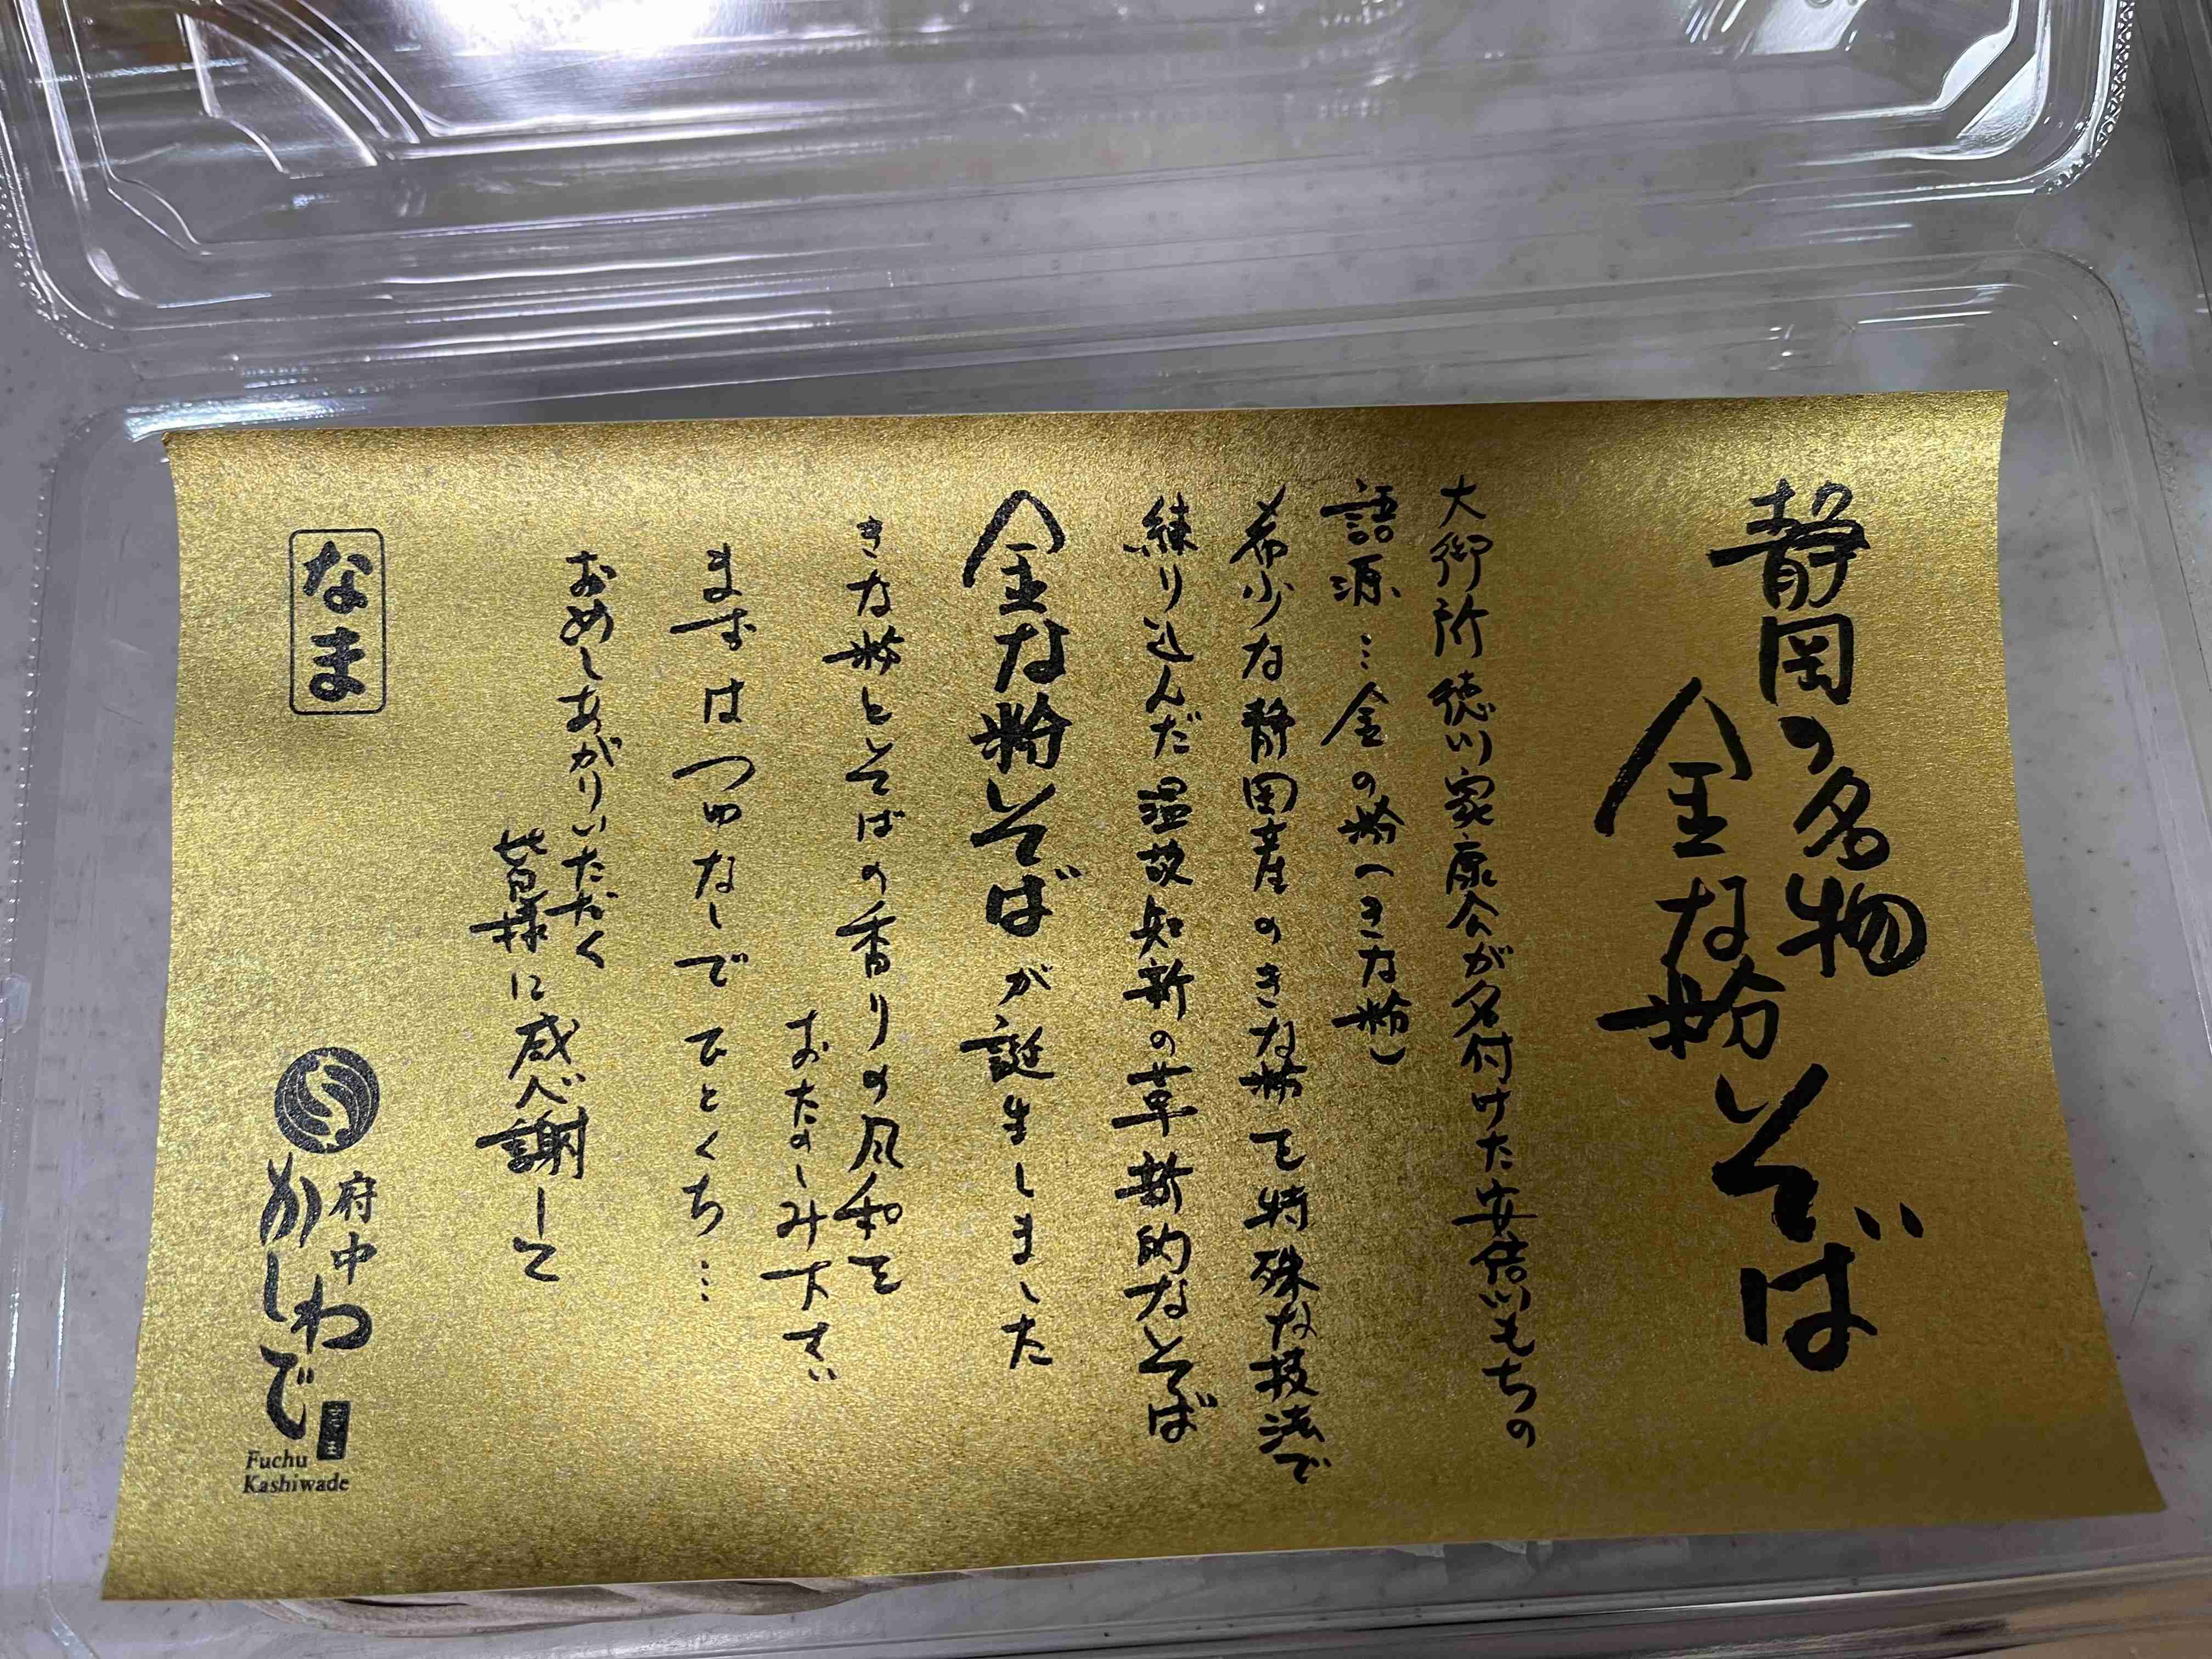 静岡の名物
金な粉そば
大御所徳川家康公が名付けた安倍川もちの
語源…金の粉(きな粉)
希少な静岡産のきな粉を特殊な技法で
練り込んだ温故知新の革新的なそば
金な粉そばが誕生しました
きな粉とそばの香りの風和を
おたのしみ下さい
まずはつゆなしでひとくち…
おめしあがりいただく
皆様に感謝して
なま
府中
かしわで
Fuchu
Kashiwade